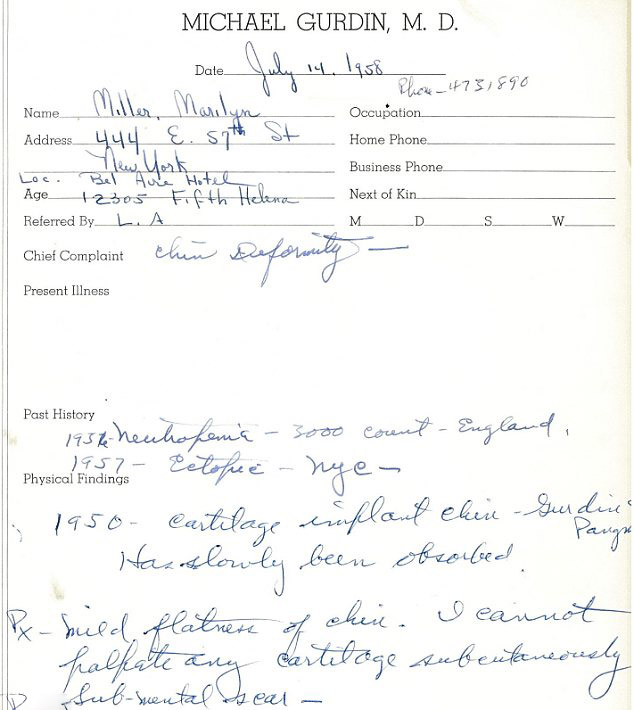 MICHAEL GURDIN, M. D.
Date July 14, 1958
Phone - 4731890
Name Miller, Marilyn
Occupation
Address 444 E. 57th St
Home Phone
New York
Business Phone
Loc. Bel Aire Hotel
Age 12305 Fifth Helena
Next of Kin
Referred By L. A
M D S W
Chief Complaint chin Deformity —
Present Illness
Past History
1956 - Neutropenia - 3000 count - England.
1957 - Ectopic - NYC -
Physical Findings
1950 - cartilage implant chin - Gurdin
Has slowly been absorbed.
Px - mild flatness of chin. I cannot
palpate any cartilage subcutaneously
Sub-mental scar -